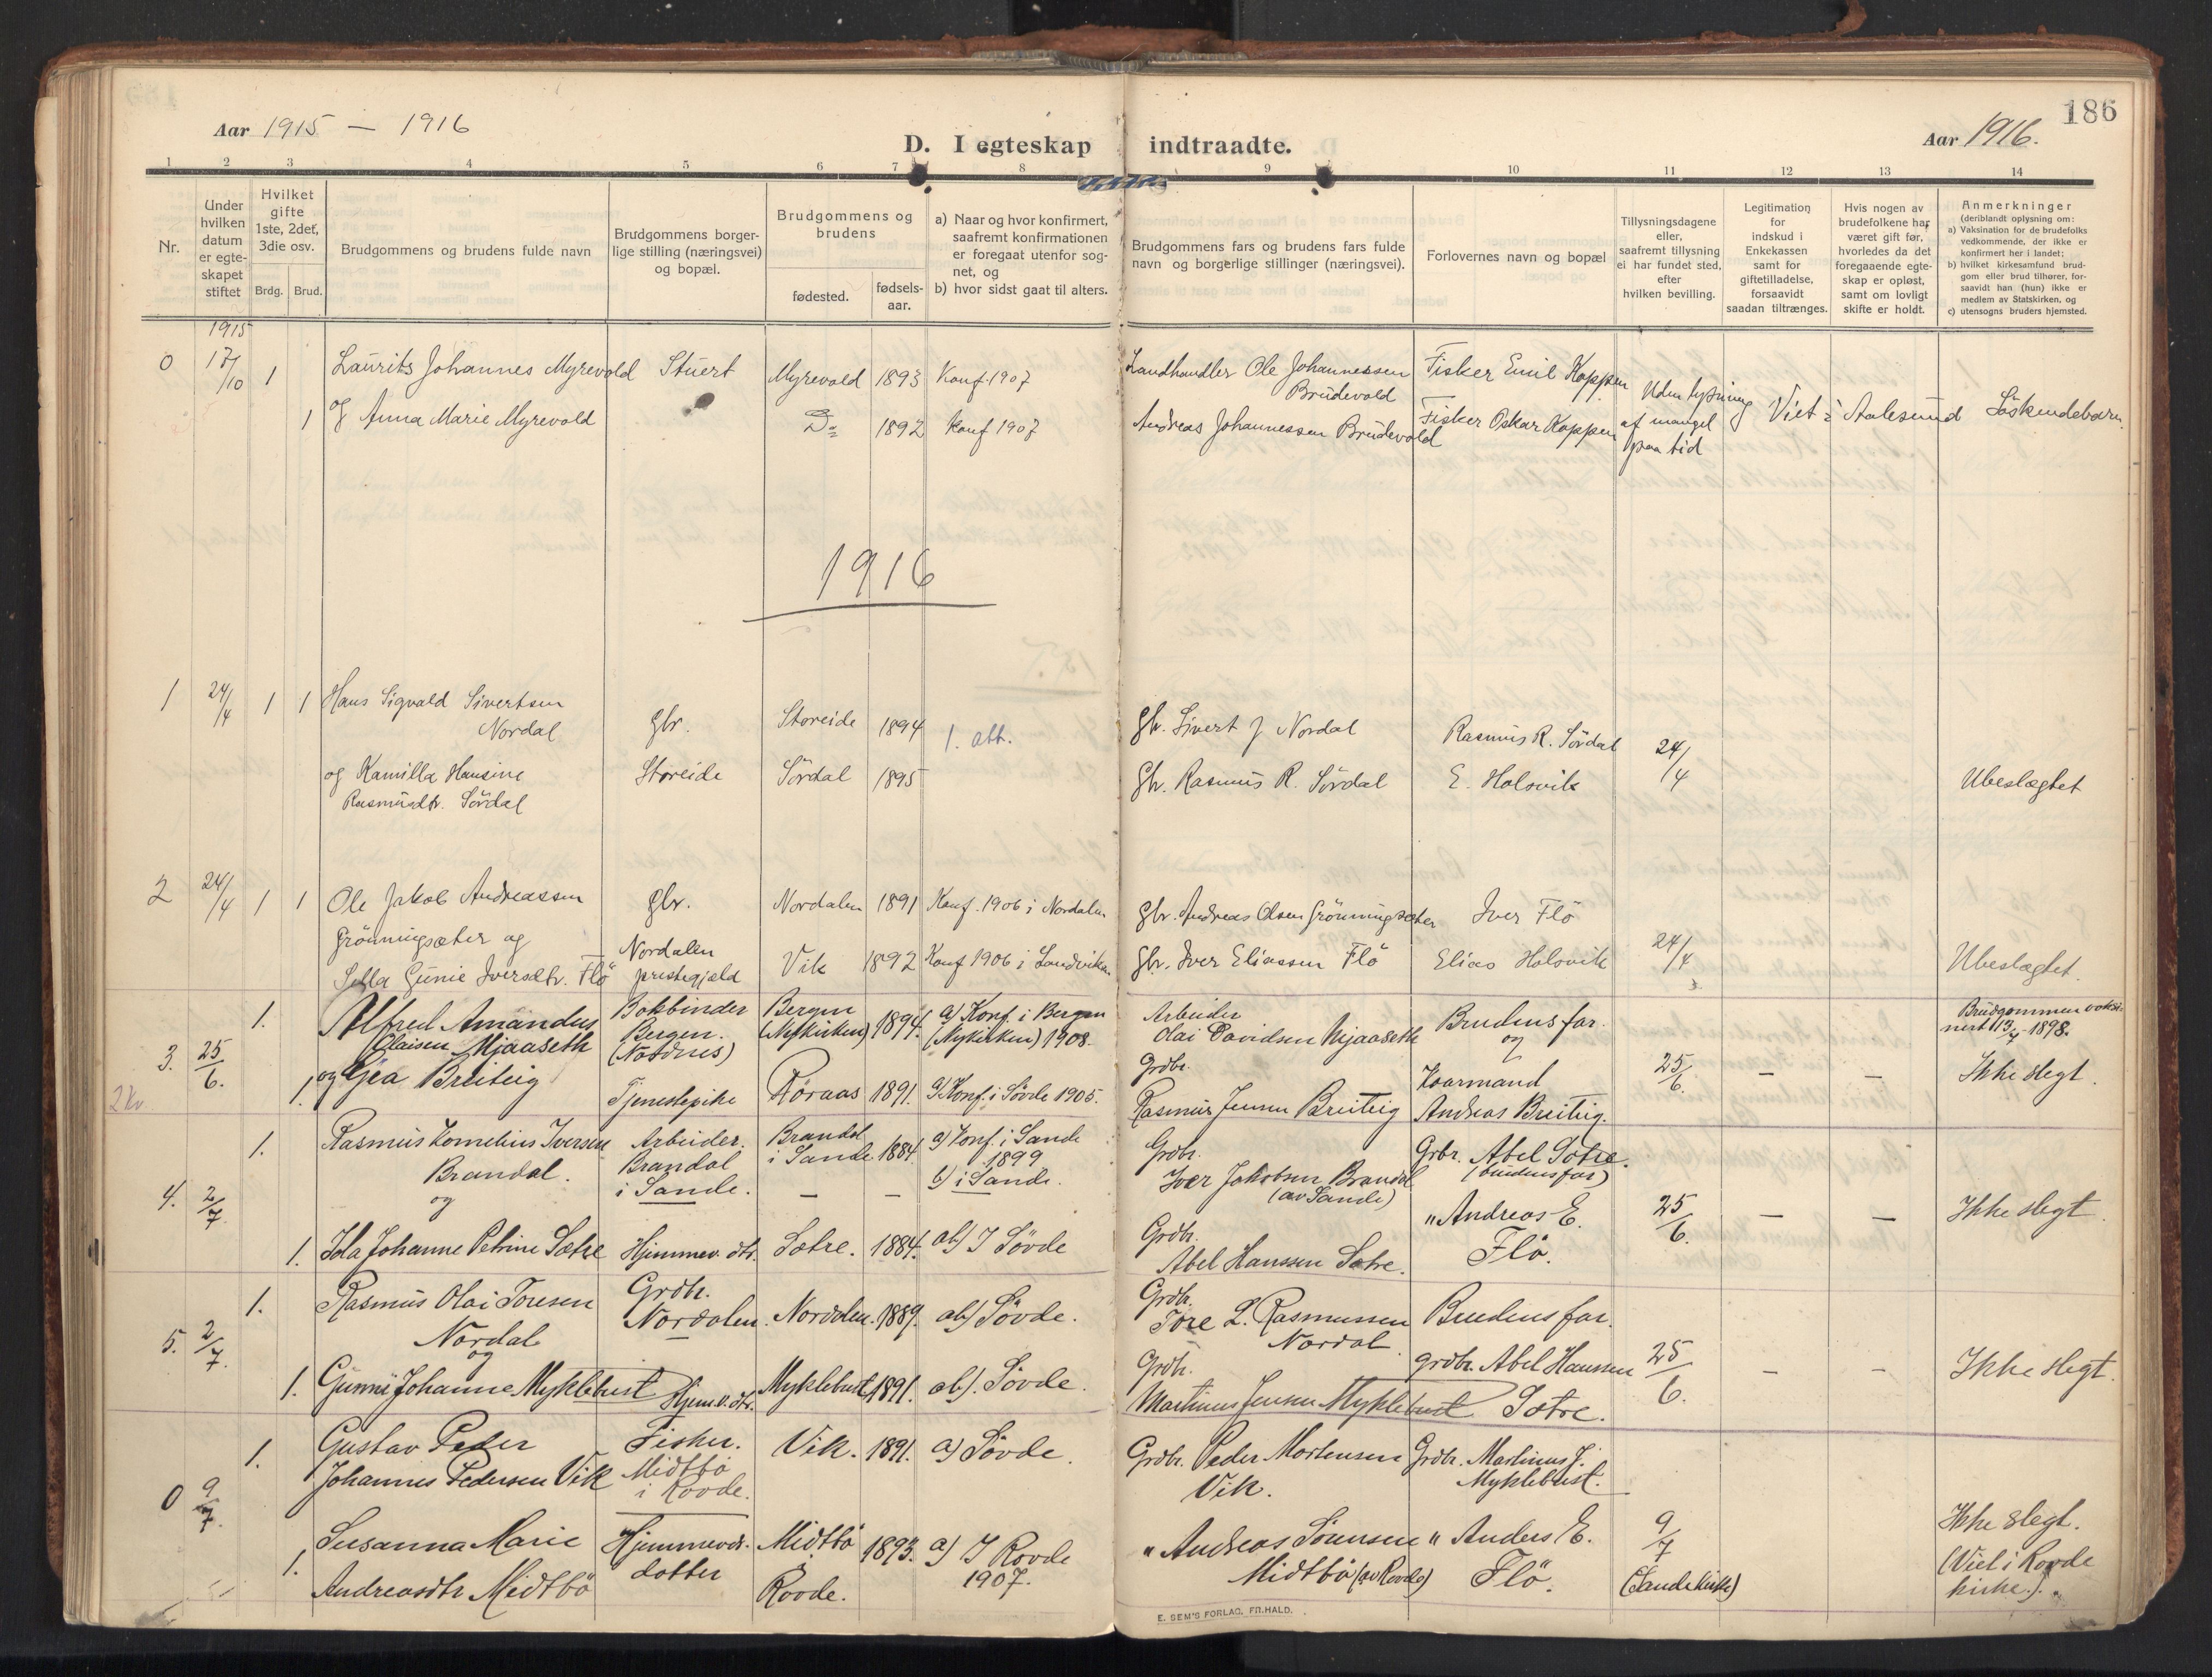 186
Aar 1915 — 1916
D. I egteskap indtraadte.
Aar 1916.
1 2 3 4 5 6 7 8 9 10 11 12 13 14
Nr.
Under
hvilken
datum
er egte-
skapet
stiftet
Hvilket
gifte
1ste, 2det,
3die osv.
Brdg. Brud.
Brudgommens og brudens fulde navn
Brudgommens borger-
lige stilling (næringsvei)
og bopæl.
Brudgommens og
brudens
fødested.
fødsels-
aar.
a) Naar og hvor konfirmert,
saafremt konfirmationen
er foregaat utenfor sog-
net, og
b) hvor sidst gaat til alters.
Brudgommens fars og brudens fars fulde
navn og borgerlige stillinger (næringsvei).
Forlovernes navn og bopæl
Tillysningsdagene
eller,
saafremt tillysning
ei har fundet sted,
efter
hvilken bevilling.
Legitimation
for
indskud i
Enkekassen
samt for
giftetilladelse,
forsaavidt
saadan tiltrænges.
Hvis nogen av
brudefolkene har
været gift før,
hvorledes da det
foregaaende egte-
skap er opløst,
samt om lovligt
skifte er holdt.
Anmerkninger
(deriblandt oplysning om:
a) Vaksination for de brudefolks
vedkommende, der ikke er
konfirmert her i landet;
b) hvilket kirkesamfund brud-
gom eller brud tilhører, for-
saavidt han (hun) ikke er
medlem av Statskirken, og
c) utensogns bruders hjemsted.
1915
0 17/10 1 Laurits Johannes Myrevold Stuert Myrevold 1893 Konf. 1907 Landhandler Ole Johannessen Brudevold Fisker Emil Koppen Uden lysning af mangel paa tid Viet i Aalesund Söskendebarn.
1 og Anna Marie Myrevold Do 1892 Konf 1907 Andreas Johannessen Brudevold Fisker Oskar Koppen
1916
1 24/4 1 1 Hans Sigvald Sivertsen
Nordal gbr. Storeide 1894 1. att. Gbr. Sivert J Nordal Rasmus R. Sørdal 24/4
og Kamilla Hansine Storeide Sørdal 1895 Gbr. Rasmus R. Sørdal E. Holsvik Ubeslægtet
Rasmusdtr. Sørdal
2 24/4 1 1 Ole Jakob Andreassen gbr. Nordalen 1891 Konf. 1906 i Nordalen gbr. Andreas Olsen Grönningsæter Iver Flö
Grönningsæter og Nordalen Vik 1892 Konf 1906 i Sandviken Gbr. Iver Eliassen Flö Elias Holsvik 24/4 Ubeslægtet.
Iversdtr. Flö prestegjeld
1. Alfred Amandus Bokbinder Bergen 1894. a) Konf. i Bergen Arbeider Brudens far. Brudgommen vaksi-
Olaisen Mjaaseth Bergen. (Nykirken) (Nykirken) 1908. Olai Davidsen Mjaaseth og nert 13/7 1898.
3. 25/6. (Nordnes)
1. og Gea Breiteig Tjenestepike Röraas 1891. a) Konf. i Søvde 1905. Grdbr. Rasmus Jensen Breiteig Kaarmand Andreas Breiteig. 25/6. — — Ikke slegt.
2 Kv
1. Rasmus Kornelius Iversen Arbeider. Brandal 1884. a) Konf. i Sande Grdbr. Grbr. Abel Sætre.
Brandal. Brandal i Sande 1899 Iver Jakobsen Brandal (brudens far)
4. 2/7. og i Sande. — — b) i Sande. (av Sande) " Andreas E. 25/6. — — Ikke slegt.
1. Ida Johanne Petrine Sætre Hjemmev. dtr. Sætre. 1884. ab) I Søvde Grdbr. Abel Hanssen Sætre. Flö.
1. Rasmus Olai Toresen Grdbr. Nordalen. 1889. ab) Søvde. Grdbr. Tore L. Rasmussen Brudens far.
5. 2/7. Nordal Nordalen. Nordal.
og
1. Gunni Johanne Myklebust Hjem.v. dtr. Myklebust 1891. ab). Søvde. Grdbr. Martinus Jensen Myklebust grdbr. Abel Hanssen Sætre. 25/6. — — Ikke slegt.
1. Gustav Peder Fisker. Vik. 1891. a) Søvde. Grdbr. Peder Mortensen Grdbr. Martinus J.
Johannes Pedersen Vik Midtbö Vik. Myklebust.
0 9/7. i Rovde.
Susanna Marie Hjemmev. Midtbö 1893. a) I Rovde " Andreas Sørensen " Anders E. 9/7 Ikke slegt.
1. Andreasdtr Midtbö datter Rovde. 1907. Midtbö (av Rovde) Flö. (Sande kirke) (Viet i Rovde
kirke.).
E. SEM'S FORLAG, FR.HALD.